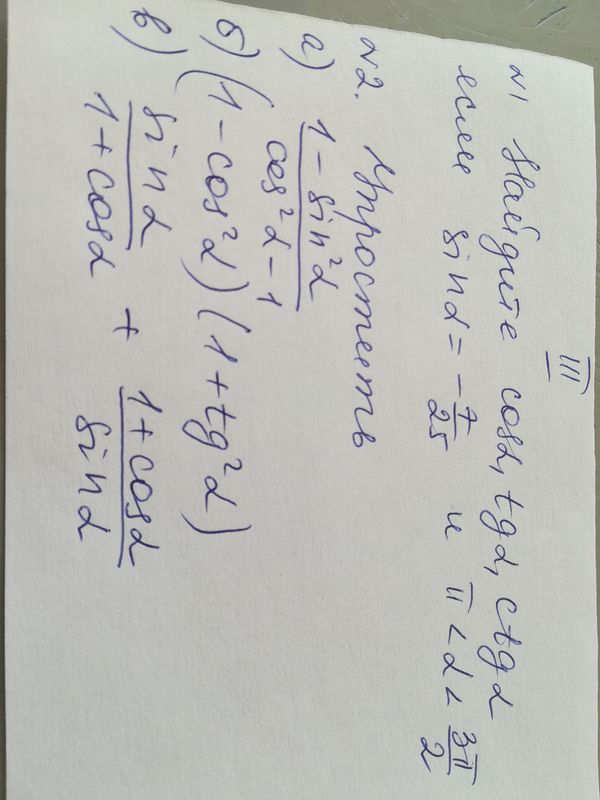 III
№1 Найдите cosα, tgα, ctgα
если sinα = -7/25 и π < α < 3π/2
№2. Упростить
а) (1 - sin²α)/(cos²α - 1)
б) (1 - cos²α)(1 + tg²α)
в) sinα/(1 + cosα) + (1 + cosα)/sinα